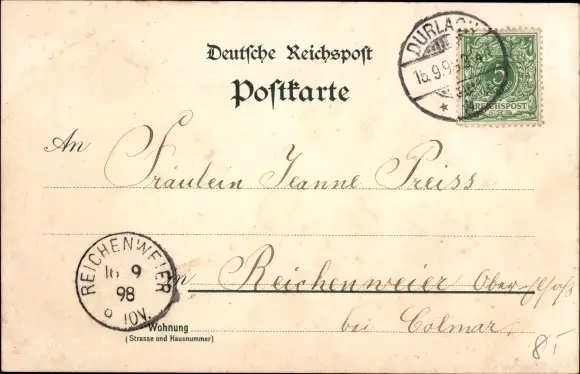 Deutsche Reichspost
Postkarte
DURLACH
16.9.98
5
REICHSPOST
An
Fräulein Jeanne Preiss
in Reichenweier Ober-Elsass
bei Colmar
REICHENWEIER
16 9
98
Wohnung
(Strasse und Hausnummer)
8,-